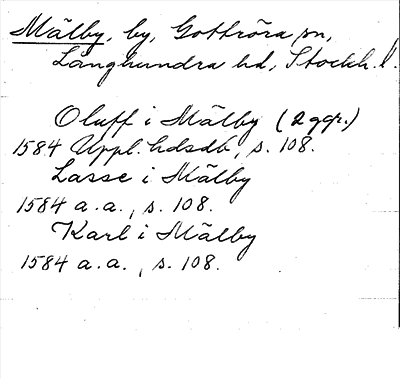 Mälby, by, Gottröra sn,
Långhundra hd, Stockh. l.
Oluff i Mälby (2 ggr.)
1584 Uppl. hdsdb, s. 108.
Lasse i Mälby
1584 a.a., s. 108.
Karl i Mälby
1584 a.a., s. 108.